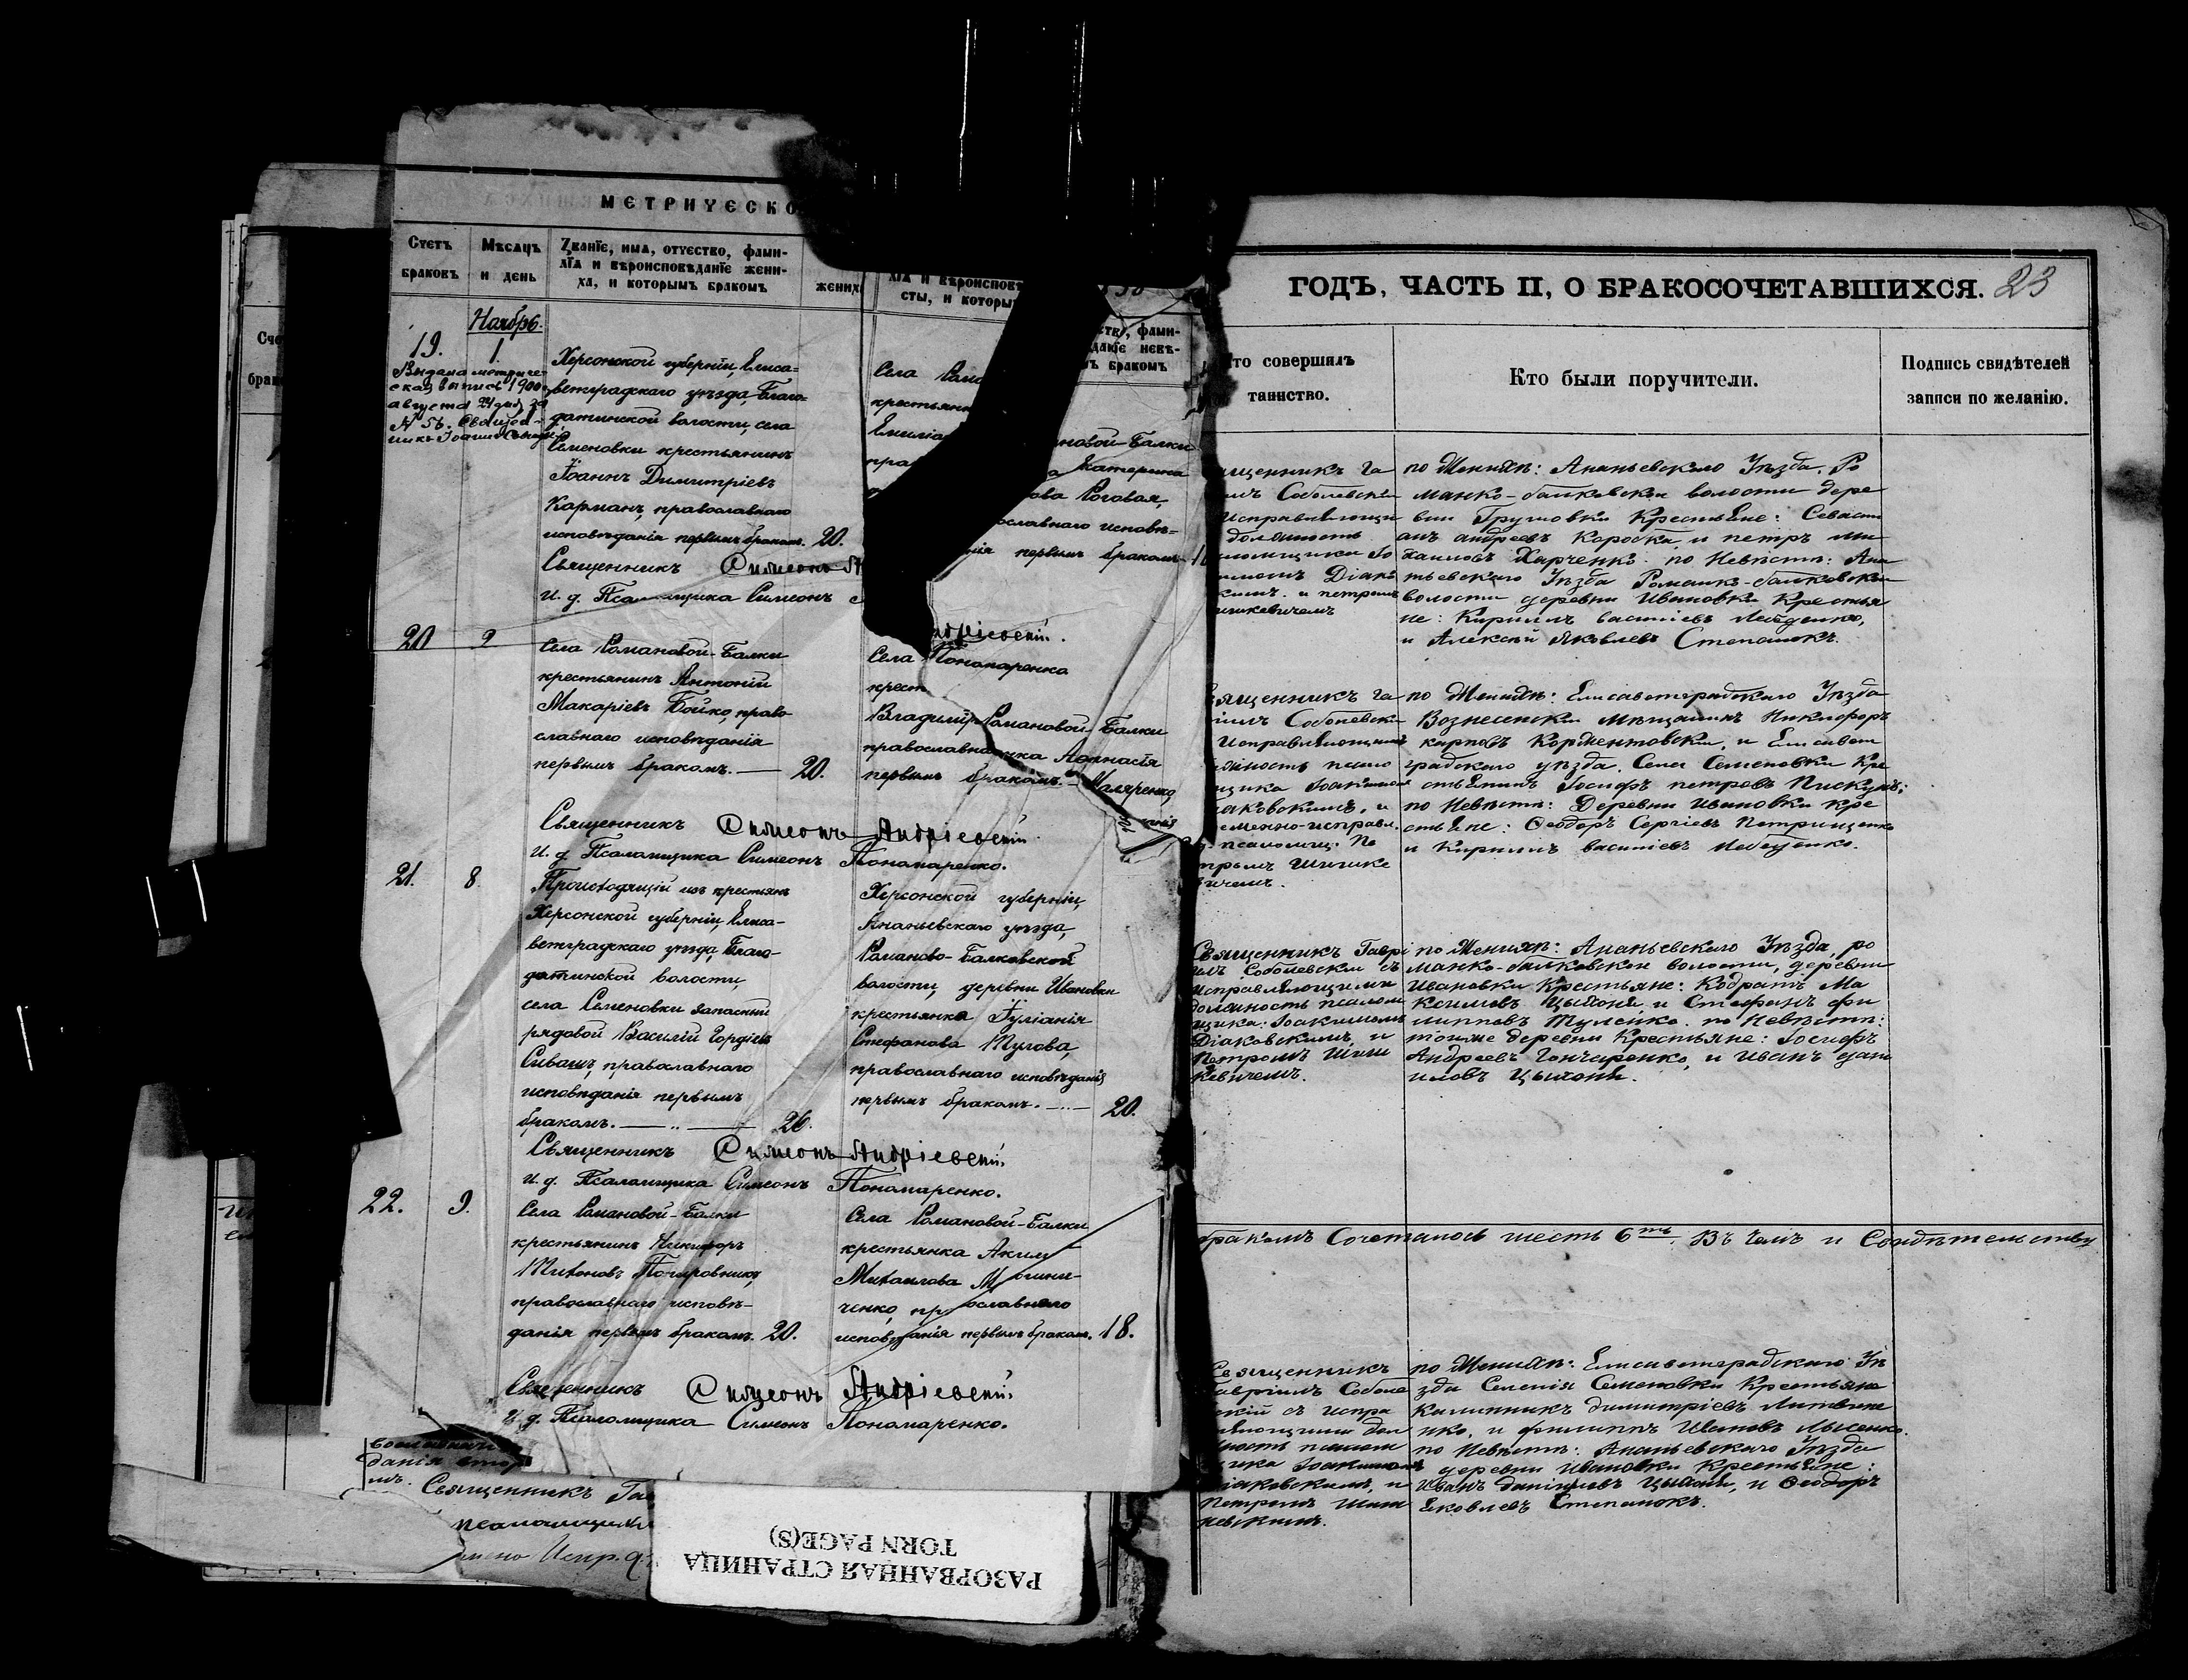 МЕТРИЧЕСКО
Счетъ браковъ
Мѣсяцъ и день
Званіе, имя, отчество, фами-
лія и вѣроисповѣданіе жени-
ха, и которымъ бракомъ
жених
лія и вѣроисповѣ
сты, и которы
ство, фами-
даніе невѣ-
ъ бракомъ
Ноябрь.
19.
1.
Выдана метриче-
ская выпись 1900
августа 24 дня за
N 56. Священ-
никъ Іоаннъ
Херсонской губерніи, Елиса-
ветградскаго уѣзда, Благо-
датинской волости, села
Семеновки крестьянинъ
Іоаннъ Димитріевъ
Карманъ, православнаго
исповѣданія первымъ бракомъ. 20.
Села Рома
крестьян
Емиліа
пра
новой-Балки
Катерина
ова Роговая,
ославнаго исповѣ-
нія первымъ бракомъ.
Священникъ Симеонъ
И. д. Псаломщика Симеонъ
ндріевскій.
Пономаренко
20
2
Села Романовой-Балки
крестьянинъ Антоній
Макаріевъ Бойко, право-
славнаго исповѣданія
первымъ бракомъ. — 20.
Села
крест
Владимір
православна
первымъ бракомъ.
Романовой Балки
нка Аѳанасія
Маляренко,
Священникъ Симеонъ Андріевскій
И. д. Псаломщика Симеонъ Пономаренко.
21.
8.
Происходящій изъ крестьянъ
Херсонской губерніи, Елиса-
ветградскаго уѣзда, Благо-
датинской волости,
села Семеновки запасный
рядовой Василій Гордіевъ
Сивашъ, православнаго
исповѣданія первымъ
бракомъ. — 26.
Херсонской губерніи,
Ананьевскаго уѣзда,
Романово-Балковской
волости, деревни Ивановки
крестьянка Іуліанія
Стефанова Тулова,
православнаго исповѣданія
первымъ бракомъ. — 20.
Священникъ Симеонъ Андріевскій.
И. д. Псаломщика Симеонъ Пономаренко.
22.
9.
Села Романовой-Балки
крестьянинъ Никифоръ
Тихоновъ
православнаго исповѣ-
данія первымъ бракомъ. 20.
Села Романовой-Балки
крестьянка Акили
Михаилова
ченко, православнаго
исповѣданія первымъ бракомъ. 18.
Священникъ Симеонъ Андріевскій.
И. д. Псаломщика Симеонъ Пономаренко.
данія
Священникъ Гав
псаломщика
РАЗОРВАННАЯ СТРАНИЦА
TORN PAGE(S)
ГОДЪ, ЧАСТЬ II, О БРАКОСОЧЕТАВШИХСЯ. 23
то совершилъ
таинство.
Кто были поручители.
Подпись свидѣтелей
записи по желанію.
ященникъ Га
илъ Соболевскій
исправляющи
должность
аломщика Іо
кимомъ Діако
кимъ. и петромъ
по Женихѣ: Ананьевского Уѣзда, Ро
манко-балковской волости дере
вни Трушовки Крестьяне: Севасти
анъ андреевъ Коробка и петръ ми
хаиловъ Харченко. по Невѣстѣ: Ана
ньевскаго Уѣзда Романко-балковской
волости деревни Ивановки Крестья
не: Кирилъ васильевъ Лебеденко,
и Алексѣй Яковлевъ Степанюкъ.
вященникъ Га
іилъ Соболевскі
Исправляющимъ
лжность псало
щика Іоакимомъ
аковскимъ, и
еменно-исправл.
псаломщ. Пе
тромъ Шишке
вичемъ.
по Женихѣ: Елисаветградскаго Уѣзда
Вознесенски Мѣщанинъ Никифоръ
карповъ Корментовскій, и Елисавет
градскаго уѣзда. Села Семеновки Кре
стьянинъ Іосифъ петровъ Пискунъ;
по Невѣстѣ: Деревни Ивановки кре
стьяне: Ѳеодоръ Сергіевъ Петрищенко
и Кирилъ васильевъ Лебеденко.
Священникъ Гаврі
илъ Соболевскій съ
Исправляющими
должность псалом
щика: Іоакимомъ
Діаковскимъ, и
Петромъ Шиш
кевичемъ.
по Женихѣ: Ананьевского Уѣзда, ро
манко-балковской волости, деревни
Ивановки Крестьяне: Кодратъ Ма
ксимовъ Цыхоня, и Стефанъ фи
липповъ Тулейко. по Невѣстѣ:
тойже деревни Крестьяне: Іосифъ
Андреевъ Гончаренко, и Иванъ дані
иловъ Цыхоня.
бракомъ Сочеталось шесть 6ть. Въ чемъ и Свидѣтельству
Священникъ
Гавріилъ Соболе
вскій съ испра
вляющими дол
жность псалом
щика Іоакимомъ
Діаковскимъ, и
Петромъ Шиш
по Женихѣ: Елисаветградскаго Уѣ
зда Селенія Семеновки Крестьяне
Калинникъ димитріевъ Литвине
нко, и филиппъ Ивановъ Лысенко.
по Невѣстѣ: Ананьевскаго Уѣзда
деревни Ивановки Крестьяне:
Иванъ даніиловъ Цыхоня, и Ѳеодоръ
Яковлевъ Степанюкъ.